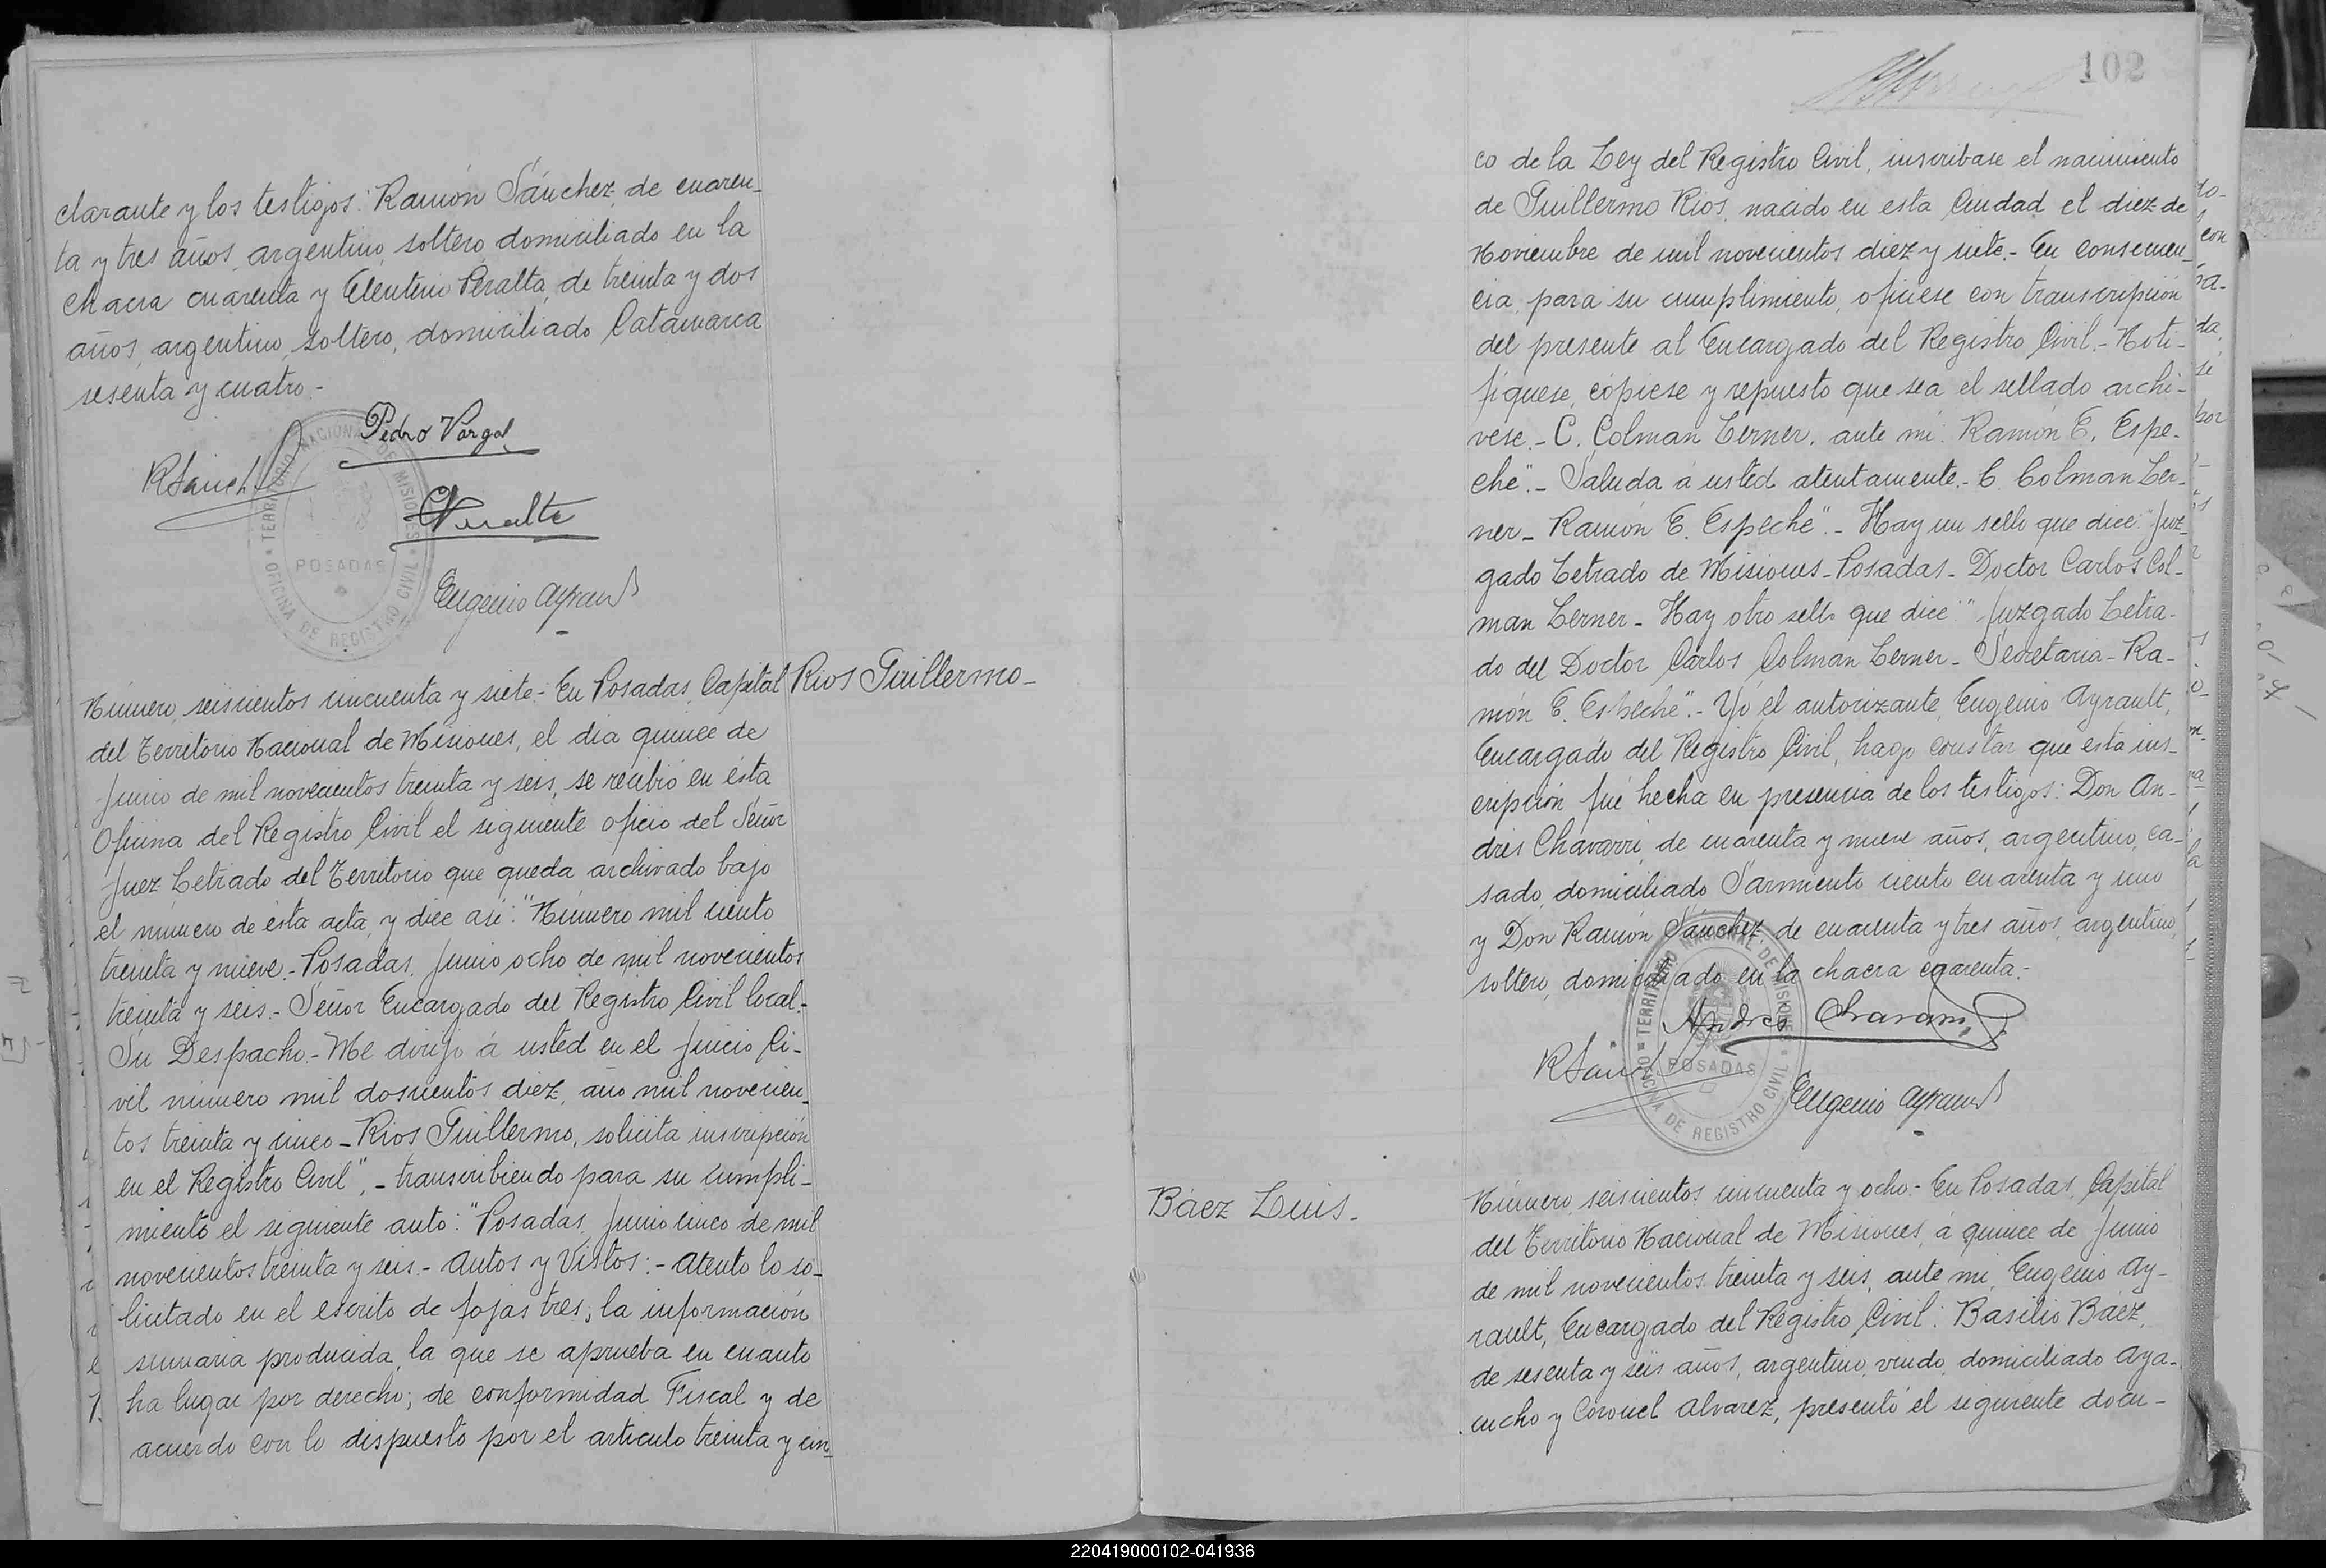 clarante y los testigos: Ramón Sánchez, de cuaren-
ta y tres años, argentino, soltero, domiciliado en la
chacra cuarenta y Clentino Peralta, de treinta y dos
años, argentino, soltero, domiciliado Catamarca
sesenta y cuatro.-
Pedro Vargas
RSanch
CPeralta
TERRITORIO NACIONAL DE MISIONES
POSADAS
OFICINA DE REGISTRO CIVIL
Eugenio Ayrault
Número seiscientos cincuenta y siete.- En Posadas, Capital
Rios Guillermo-
del Territorio Nacional de Misiones, el dia quince de
Junio de mil novecientos treinta y seis, se recibió en ésta
Oficina del Registro Civil el siguiente oficio del Señor
Juez Letrado del Territorio que queda archivado bajo
el número de ésta acta, y dice asi: "Número mil ciento
treinta y nueve.- Posadas, Junio ocho de mil novecientos
treinta y seis.- Señor Encargado del Registro Civil local.-
Su Despacho.- Me dirijo á usted en el Juicio Ci-
vil número mil doscientos diez, año mil novecien-
tos treinta y cinco - Rios Guillermo, solicita inscripción
en el Registro Civil",- transcribiendo para su cumpli-
miento el siguiente auto: "Posadas, Junio cinco de mil
novecientos treinta y seis.- Autos y Vistos:- Atento lo so-
licitado en el escrito de fojas tres; la información
sumaria producida, la que se aprueba en cuanto
ha lugar por derecho; de conformidad Fiscal y de
acuerdo con lo dispuesto por el articulo treinta y cin-
102
co de la Ley del Registro Civil, inscribase el nacimiento
de Guillermo Rios, nacido en esta Ciudad el diez de
Noviembre de mil novecientos diez y siete.- En consecuen-
cia, para su cumplimiento, ofíciese con transcripción
del presente al Encargado del Registro Civil.- Noti-
fiquese, cópiese y repuesto que sea el sellado archi-
vese.- C. Colman Lerner, ante mi: Ramón E. Espe-
che".- Saluda á usted atentamente.- C. Colman Ler-
ner- Ramón E. Espeche".- Hay un sello que dice: "Juz-
gado Letrado de Misiones- Posadas- Doctor Carlos Col-
man Lerner- Hay otro sello que dice: "Juzgado Letra-
do del Doctor Carlos Colman Lerner- Secretaria- Ra-
món E. Espeche".- Yo el autorizante, Eugenio Ayrault,
Encargado del Registro Civil, hago constar que esta ins-
cripción fué hecha en presencia de los testigos: Don An-
drés Chavarri, de cuarenta y nueve años, argentino, ca-
sado, domiciliado Sarmiento ciento cuarenta y uno
y Don Ramón Sánchez, de cuarenta y tres años, argentino,
soltero, domiciliado en la chacra cuarenta.-
Andres Chavarri
RSanch
TERRITORIO NACIONAL DE MISIONES
POSADAS
OFICINA DE REGISTRO CIVIL
Eugenio Ayrault
Báez Luis-
Número seiscientos cincuenta y ocho.- En Posadas, Capital
del Territorio Nacional de Misiones, á quince de Junio
de mil novecientos treinta y seis, ante mi, Eugenio Ay-
rault, Encargado del Registro Civil: Basilio Báez,
de sesenta y seis años, argentino, viudo, domiciliado Aya-
cucho y Coronel Alvarez, presentó el siguiente docu-
220419000102-041936